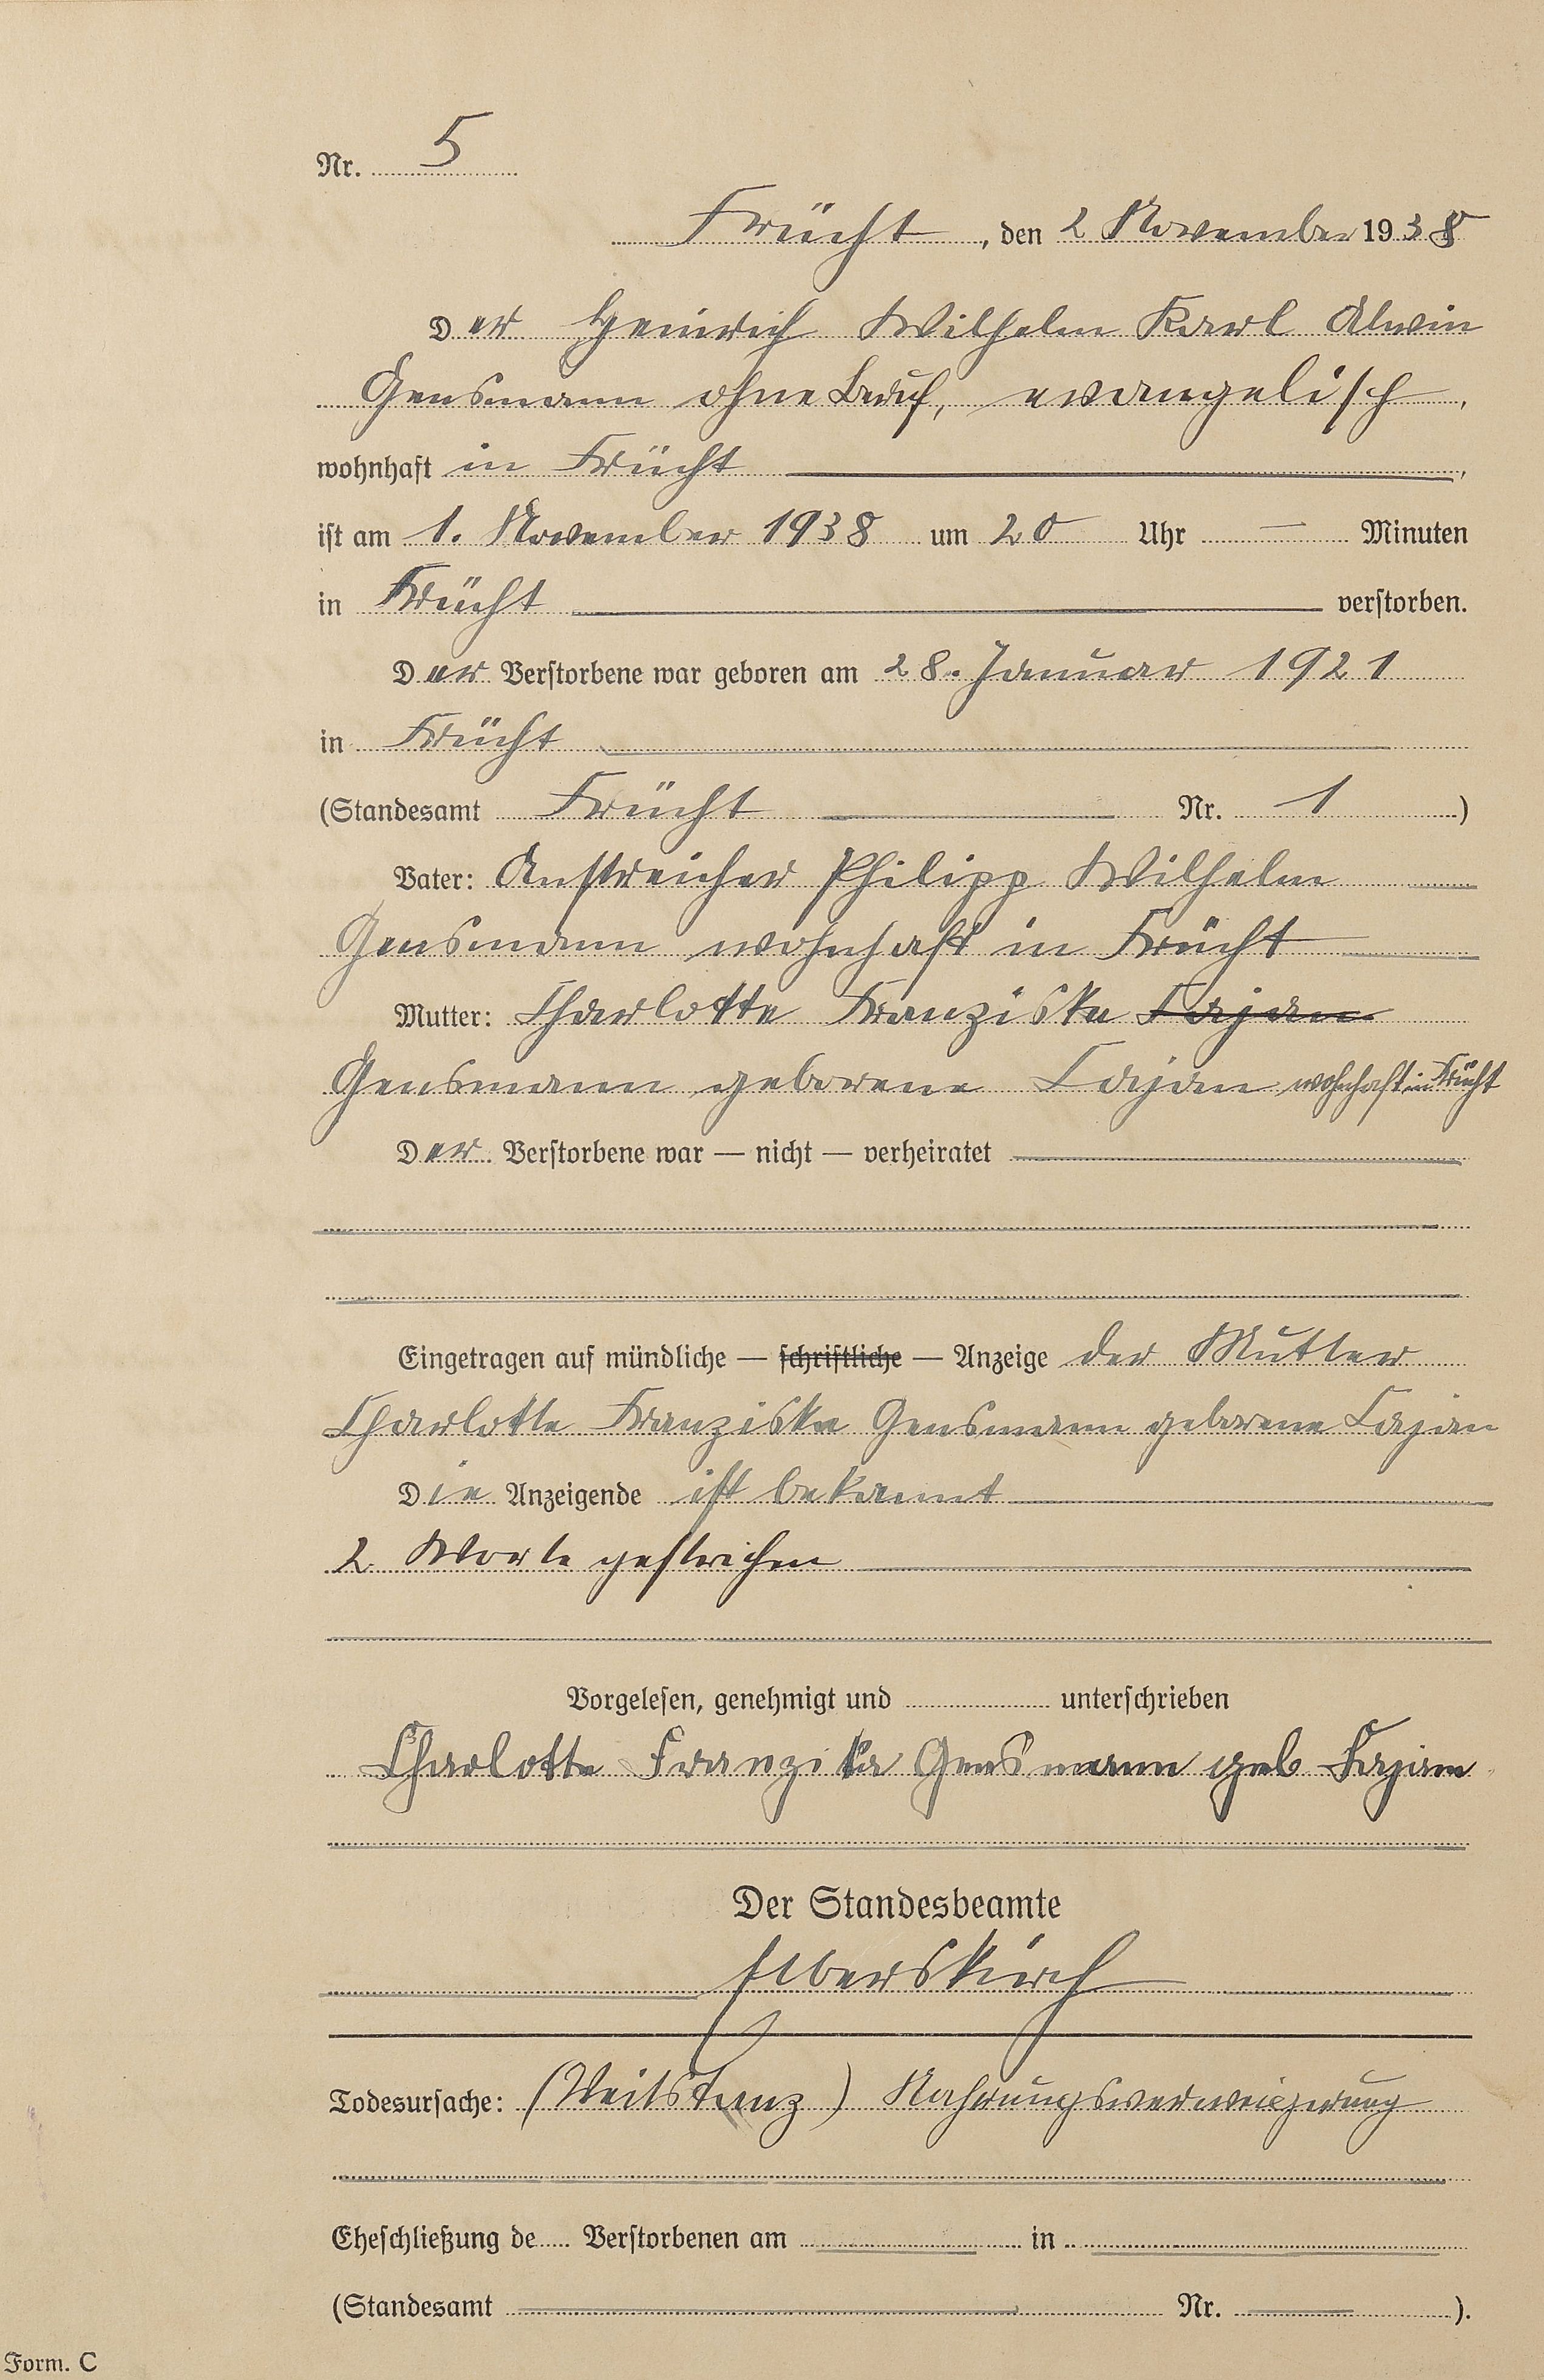 Nr. 5
Frücht, den 2 November 1938
Der Heinrich Wilhelm Karl Alwin
Gensmann ohne Beruf, evangelisch,
wohnhaft in Frücht,
ist am 1. November 1938 um 20 Uhr — Minuten
in Frücht verstorben.
Der Verstorbene war geboren am 28. Januar 1921
in Frücht
(Standesamt Frücht Nr. 1)
Vater: Anstreicher Philipp Wilhelm
Gensmann wohnhaft in Frücht
Mutter: Charlotte Franziska Cajan
Gensmann geborene Cajan wohnhaft in Frücht
Der Verstorbene war — nicht — verheiratet
Eingetragen auf mündliche — schriftliche — Anzeige der Mutter
Charlotte Franziska Gensmann geborene Cajan
Die Anzeigende ist bekannt
2 Worte gestrichen
Vorgelesen, genehmigt und unterschrieben
Charlotte Franzika Gensmann geb Cajan
Der Standesbeamte
Elberskirch
Todesursache: (Veitstanz) Nahrungsverweigerung
Eheschließung de Verstorbenen am in
(Standesamt Nr. ).
Form. C